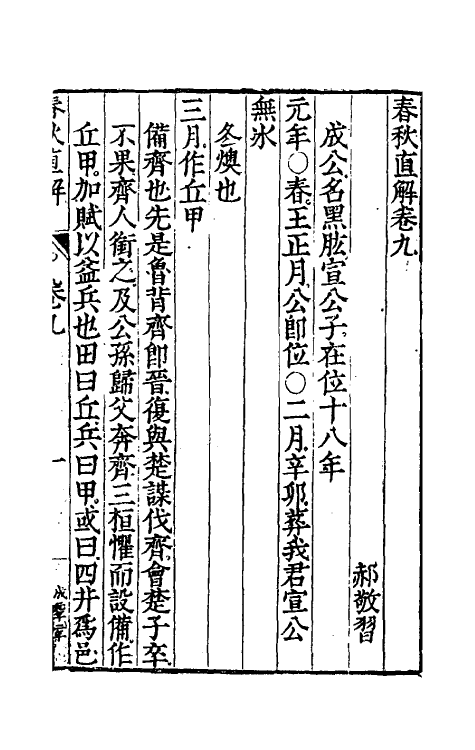 春秋直解卷九
郝敬習
成公名黑肱宣公子在位十八年
元年○春王正月公卽位○二月辛卯葬我君宣公
無冰
冬燠也
三月作丘甲
備齊也先是魯背齊卽晉復與楚謀伐齊會楚子卒
不果齊人銜之及公孫歸父奔齊三桓懼而設備作
丘甲加賦以益兵也田曰丘兵曰甲或曰四井爲邑
春秋直解
卷九
一